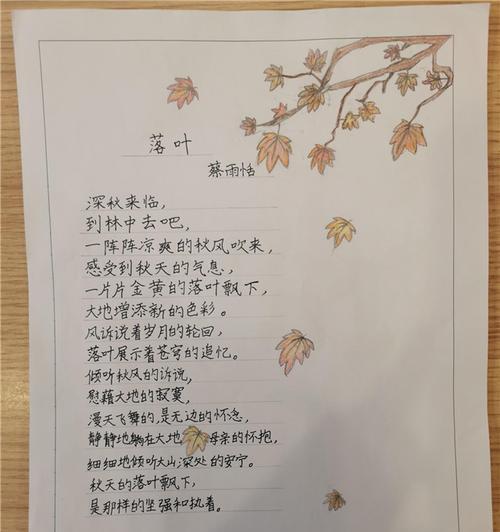 落叶
蔡雨恬
深秋来临,
到林中去吧,
一阵阵凉爽的秋风吹来,
感受到秋天的气息,
一片片金黄的落叶飘下,
大地增添新的色彩。
风诉说着岁月的轮回,
落叶展示着苍穹的追忆。
倾听秋风的诉说,
慰藉大地的寂寞,
漫天飞舞的,是无边的怀念,
静静地躺在大地 母亲的怀抱,
细细地倾听大山深处的安宁。
秋天的落叶飘下,
是那样的坚强和执着。